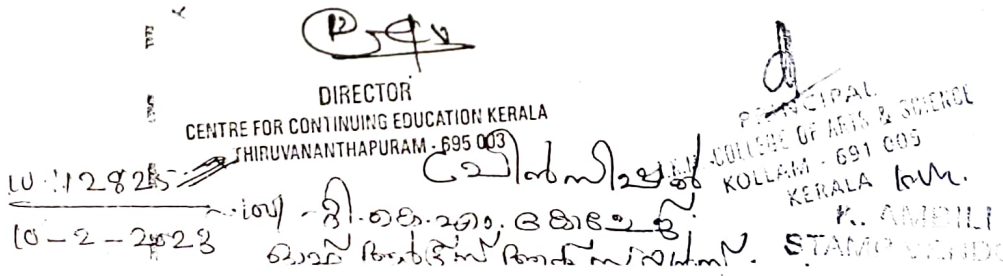 DIRECTOR
CENTRE FOR CONTINUING EDUCATION KERALA
THIRUVANANTHAPURAM - 695 003
PRINCIPAL
COLLEGE OF ARTS & SCIENCE
KOLLAM - 691 005
KERALA
12825
പ്രിൻസിപ്പൽ
10-2-2023
ടി.കെ.എം. കോളേജ്
ഓഫ് ആർട്സ് ആൻഡ് സയൻസ്.
K. AMBILI
STAMP VENDOR